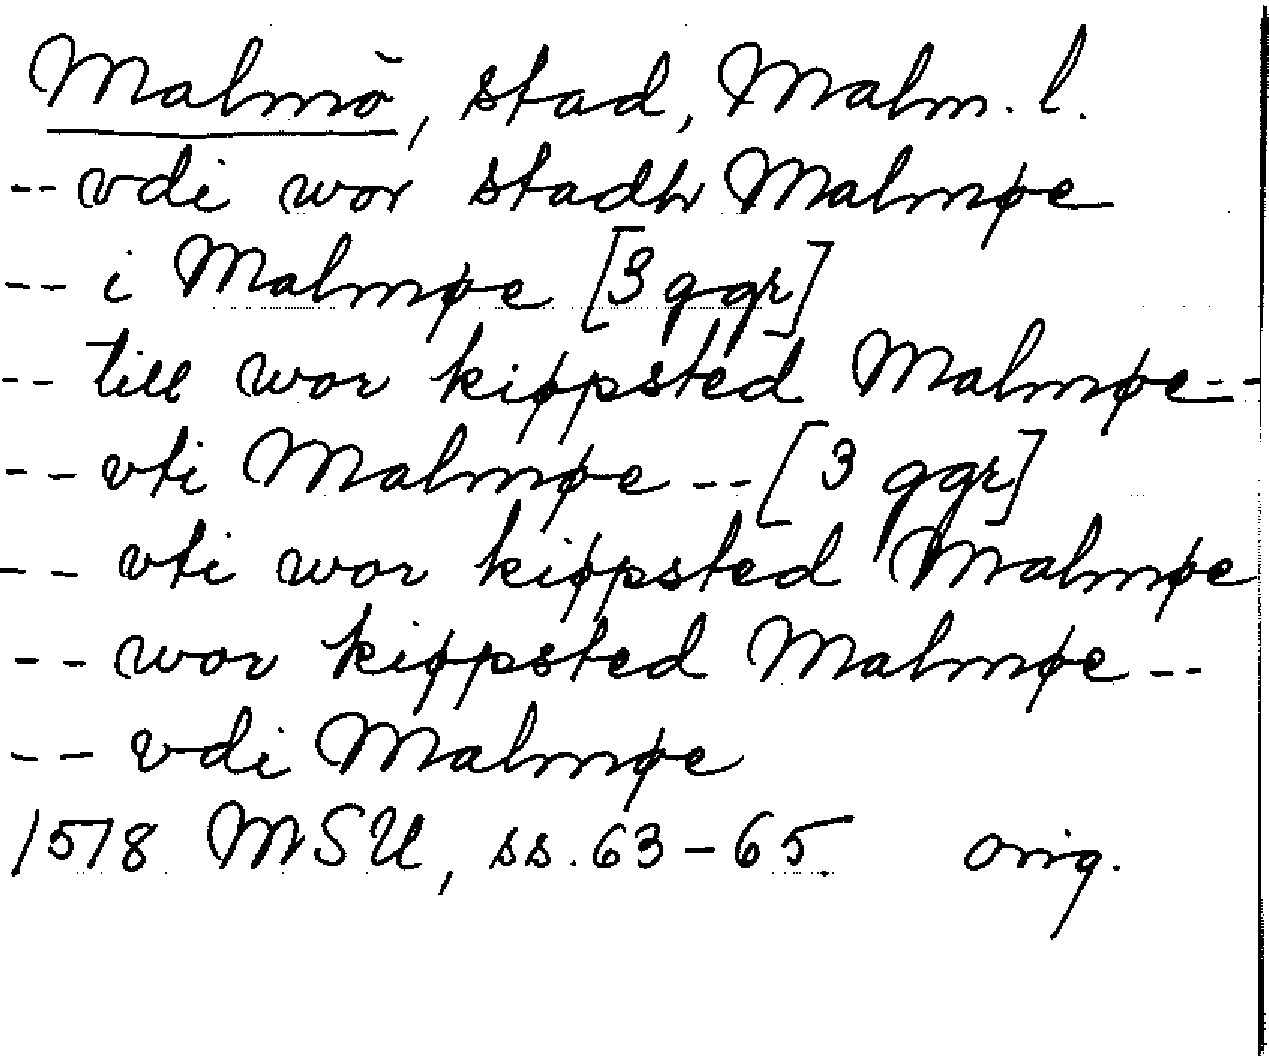 Malmö, stad, Malm. l.
-- vdi wor stadh Malmøe
-- i Malmøe [3 ggr]
-- till wor kiøpsted Malmøe --
-- vti Malmøe -- [3 ggr]
-- vti wor kiøpsted Malmøe
-- wor kiøpsted Malmøe --
-- vdi Malmøe
1578 MSU, ss. 63-65 orig.